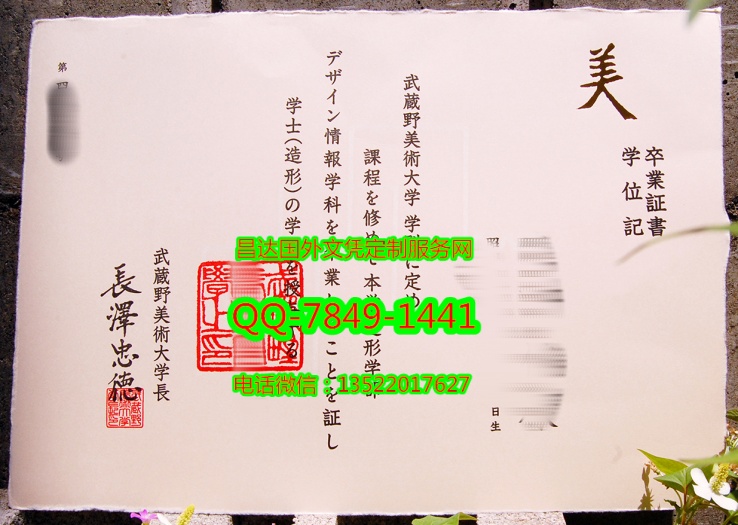 美
卒業証書
学位記
日生
武蔵野美術大学 学則に定め
課程を修め 本学 形学
デザイン情報学科を 業 ことを証し
学士(造形)の学 を授 る
武蔵野美術大学長
長澤忠德
第
昌达国外文凭定制服务网
QQ-7849-1441
电话微信：13522017627